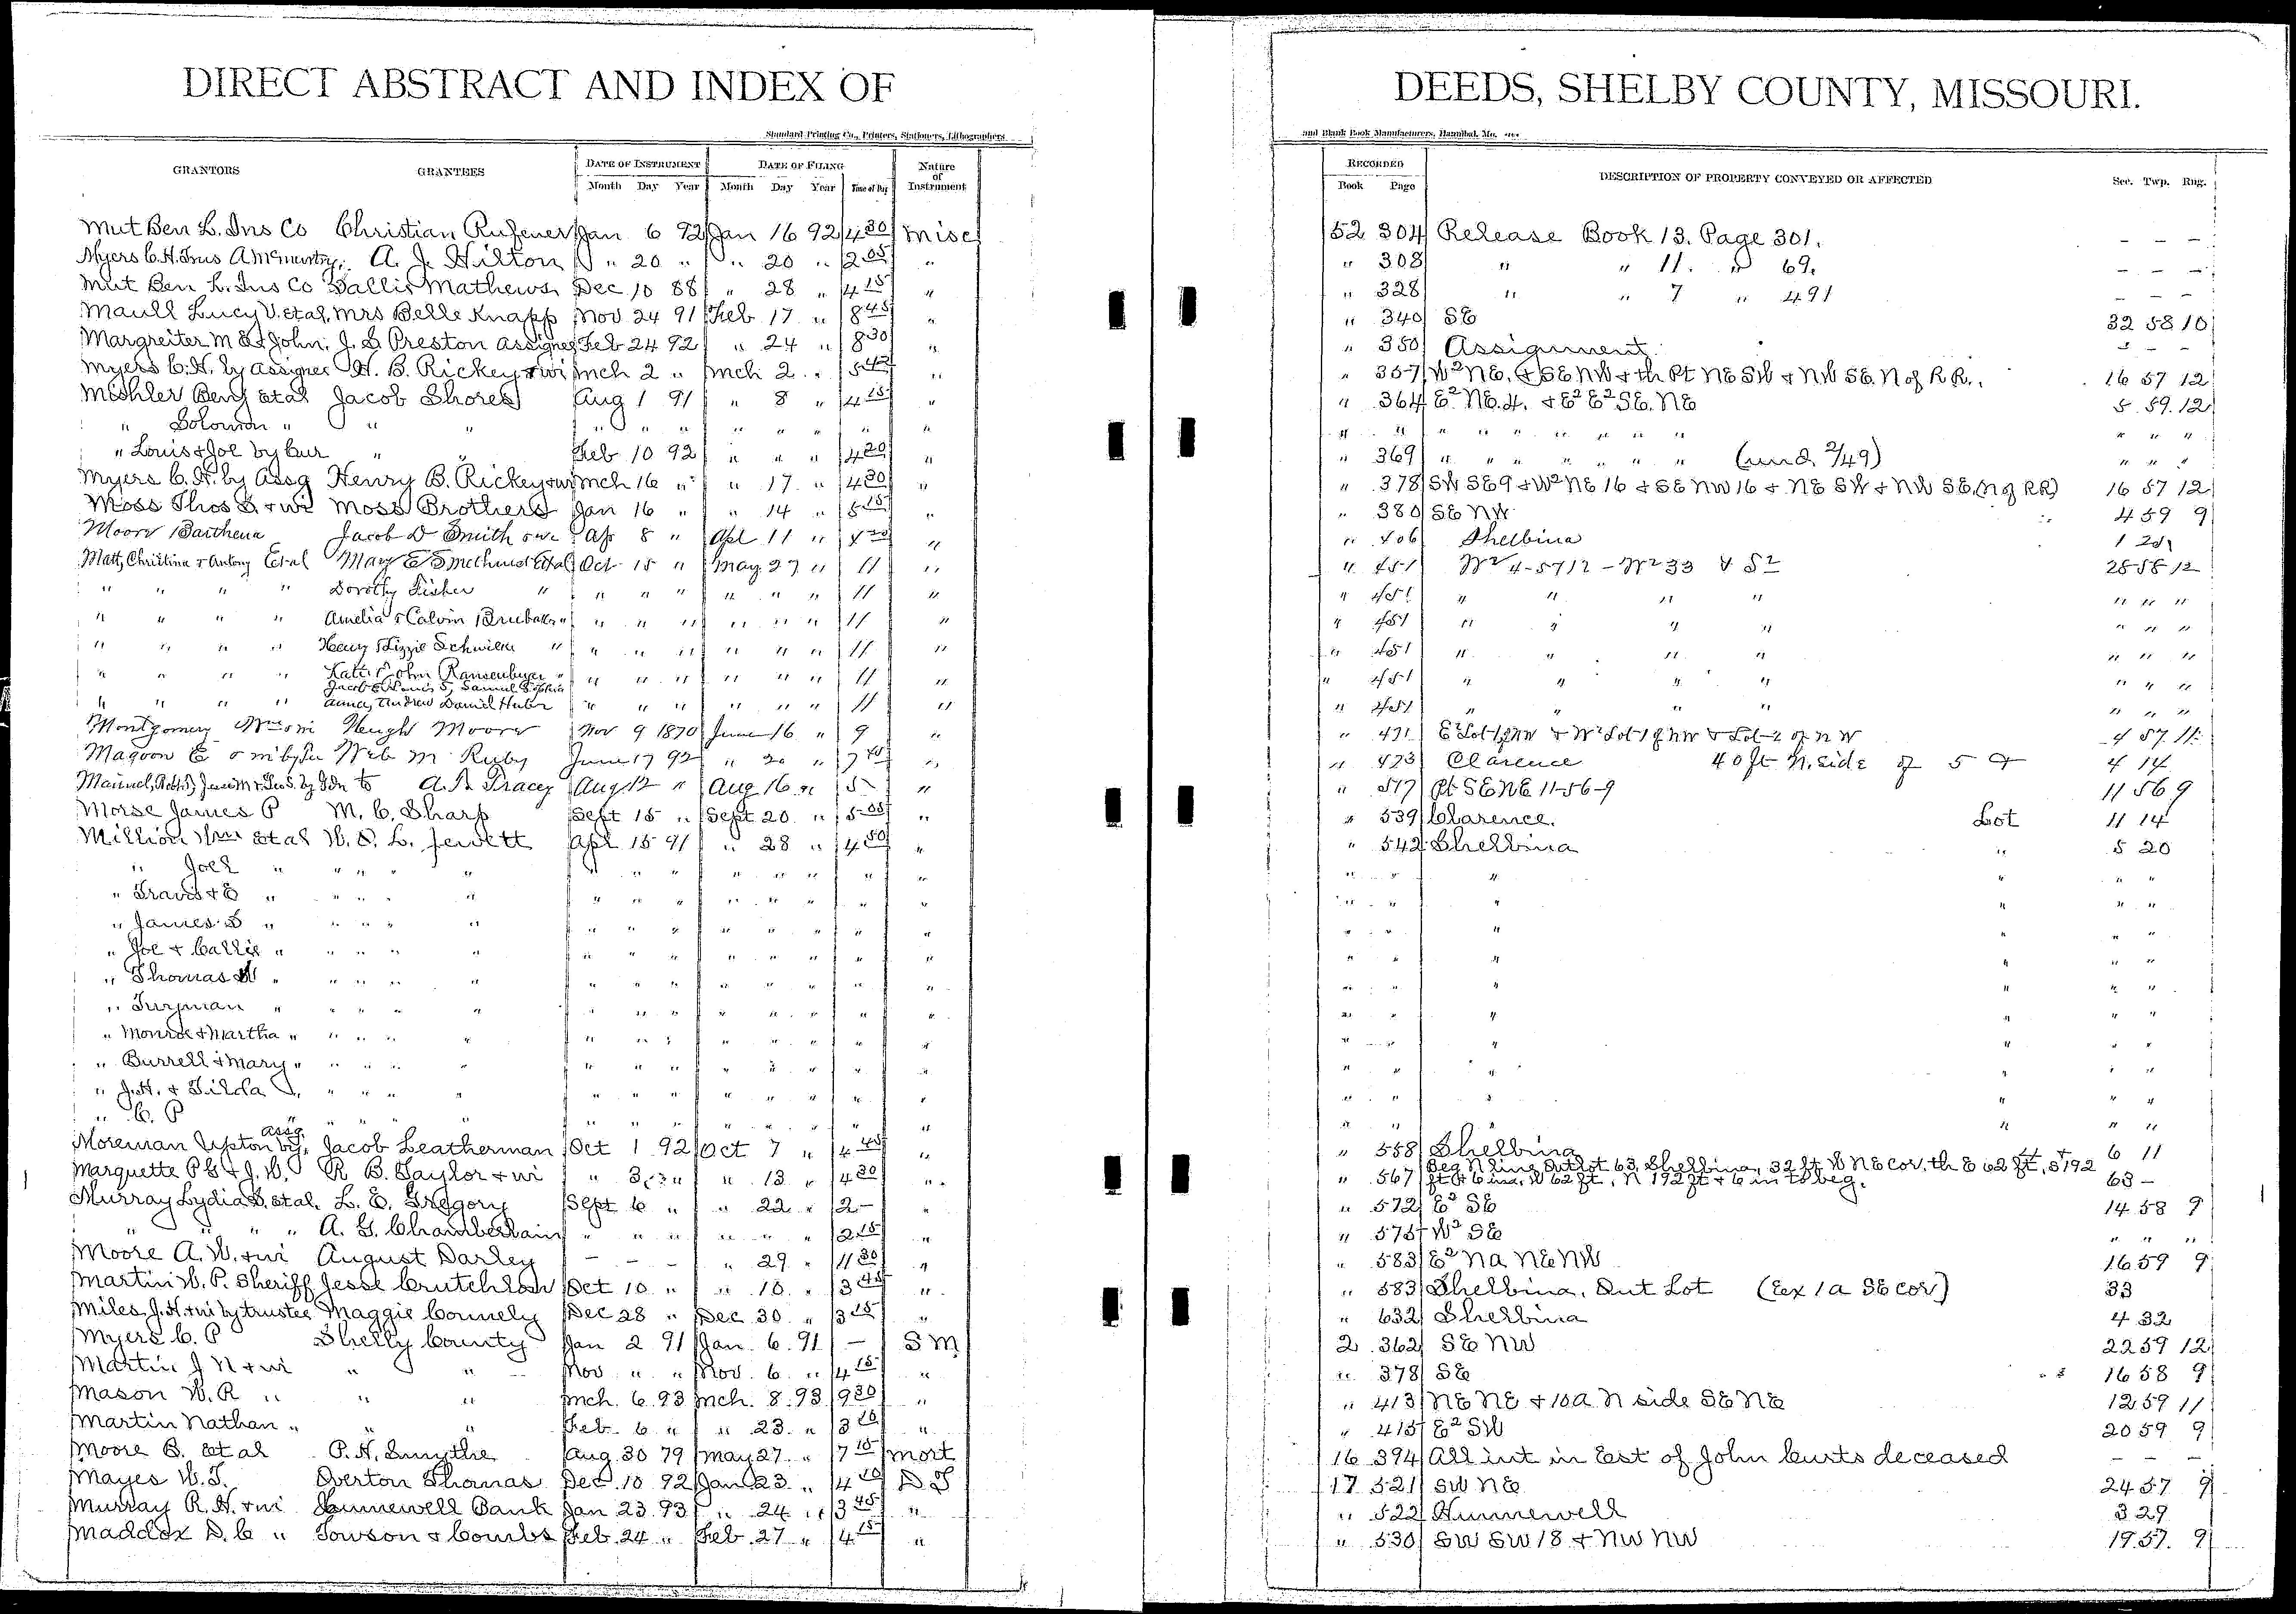 DIRECT ABSTRACT AND INDEX OF DEEDS, SHELBY COUNTY, MISSOURI.
Standard Printing Co., Printers, Stationers, Lithographers and Blank Book Manufacturers, Hannibal, Mo.
GRANTORS GRANTEES DATE OF INSTRUMENT DATE OF FILING Nature of Instrument RECORDED DESCRIPTION OF PROPERTY CONVEYED OR AFFECTED Sec. Twp. Rng.
Month Day Year Month Day Year Time of Day Book Page
Mut Ben L. Ins Co Christian Rufener Jan 6 92 Jan 16 92 4 30 Misc 52 304 Release Book 13. Page 301. - - -
Myers C.H. Trus A McMurtry, A. J. Hilton " 20 " " 20 " 2 05 " " 308 " " 11. " 69. - - -
Mut Ben L. Ins Co Sallie Mathews Dec 10 88 " 28 " 4 15 " " 328 " " 7 " 491 - - -
Maull Lucy V. etal, Mrs Belle Knapp Nov 24 91 Feb 17 " 8 45 " " 340 SE 32 58 10
Margreiter M E & John, J. S. Preston Assignee Feb 24 92 " 24 " 8 30 " " 350 Assignment - - -
Myers C.H. by Assignee H. B. Rickey & wi Mch 2 " Mch 2 " " " 357 W2 NE. & SE NW & th Pt NE SW & NW SE. N of R R. 16 57 12
Mishler Benj etal Jacob Shores Aug 1 91 " 8 " 4 15 " " 364 E2 NE.4. & E2 E2 SE. NE 5. 59. 12
" Solomon " " " " " " " " " " " " " " " " " " " " " " " "
" Louis & Joe by Cur " " Feb 10 92 " " " 4 20 " " 369 " " " " " " " (und. 2/49) " " "
Myers C. H. by Assg Henry B. Rickey & wi Mch 16 " " 17. " 4 30 " " 378 SW SE 9 & W2 NE 16 & SE NW 16 & NE SW & NW SE. (N of RR) 16 57 12
Moss Thos S. & wi Moss Brothers Jan 16 " " 14 " 5 15 " " 380 SE NW 4 59 9
Moore Barthena Jacob D Smith & wi Ap 8 " Apl 11 " " " 406 Shelbina 1 21
Matt, Christina & Antony Etal Mary E Smechmel Etal Oct 15 " May 27 " 11 " " 451 W2 4-57 12 - W2 33 & S2 28 58 12
" " " " Dorothy Fisher " " " " " " " 11 " " 451 " " " " " " "
" " " " Amelia & Calvin Brubaker " " " " " " " 11 " " 451 " " " " " " "
" " " " Henry & Lizzie Schwilke " " " " " " " 11 " " 451 " " " " " " "
" " " " Kate & John Ransenberger " " " " " " " 11 " " 451 " " " " " " "
Jacob E Louis S, Samuel Sophia
" " " " Anna, Andrew Daniel Huber " " " " " " 11 " " 451 " " " " " " "
Montgomery Wm & wi Hugh Moore Nov 9 1870 June 16 " 9 " " 471 E2 Lot 1 of NW & W2 Lot 1 of NW & Lot 2 of NW 4 57. 11
Magoon E & wi by Web M Ruby June 17 92 " 20 " 7 " " 473 Clarence 40 ft N. side of 5 & 4 14
A. R. Tracey Aug 12 " Aug 16 " 5 " " 517 Pt SE NE 11-56-9 11 56 9
Morse James P M. C. Sharp Sept 15 " Sept 20. " 5 05 " " 539 Clarence. Lot 11 14
Million Wm etal W. O. L. Jewett Apl 15 91 " 28 " 4 50 " " 542 Shelbina " 5 20
" Joel " " " " " " " " " " " " " " " " " " "
" Travis & E " " " " " " " " " " " " " " " " " " "
" James S " " " " " " " " " " " " " " " " " " "
" Joe & Callie " " " " " " " " " " " " " " " " " " "
" Thomas W " " " " " " " " " " " " " " " " " " "
" Turzman " " " " " " " " " " " " " " " " " " "
" Monroe & Martha " " " " " " " " " " " " " " " " " " "
" Burrell & Mary " " " " " " " " " " " " " " " " " " "
" J.H. & Tilda " " " " " " " " " " " " " " " " " " "
" C. P " " " " " " " " " " " " " " " " " " "
Moreman Upton by Assg. Jacob Leatherman Oct 1 92 Oct 7 " 4 45 " " 558 Shelbina 6 11
Marquette P E & J. W. R. B. Taylor & wi " 3 " " 13 " 4 30 " " 567 Beg N line Outlot 63, Shelbina, 32 ft W NE cor. th E 62 ft, S 192 ft & 6 ins, W 62 ft, N 192 ft & 6 in to beg. 63 -
Murray Lydia S. etal. L. E. Gregory Sept 6 " " 22 " 2 - " " 572 E2 SE 14 58 9
" " " " A. G. Chamberlain " " " " " " 2 15 " " 575 W2 SE " " "
Moore A. W. & wi August Darley - - - " 29 " 11 30 " " 583 E2 Na NE NW 16 59 9
Martin W. P. Sheriff Jesse Crutchlow Oct 10 " " 10. " 3 45 " " 583 Shelbina, Out Lot (Ex 1 a SE cor) 33
Miles J. H. & wi by trustee Maggie Connely Dec 28 " Dec. 30. " 3 15 " " 632 Shelbina 4 32
Myers C. P Shelby County Jan 2 91 Jan. 6. 91 - S M 2 362 SE NW 22 59 12
Martin J N & wi " " Nov " " Nov. 6. " 4 15 " " 378 SE 16 58 9
Mason W. R " " " Mch. 6. 93 Mch. 8. 93 9 30 " " 413 NE NE & 10 a N side SE NE 12 59 11
Martin Nathan " " " Feb. 6 " " 23. " 3 " " 415 E2 SW 20 59 9
Moore B. etal P. H. Smythe Aug 30 79 May 27. " 7 15 Mort 16 394 All int in Est of John Curts deceased - - -
Mayes W. T. Overton Thomas Dec. 10 92 Jan 23. " 4 20 D T 17 521 SW NE 24 57 9
Murray R. H. & wi Hunnewell Bank Jan 23. 93 " 24. " 3 45 " " 522 Hunnewell 3 29
Maddox D. C " Towson & Combs Feb. 24 " Feb. 27 " 4 15 " " 530 SW SW 18 & NW NW 19. 57. 9